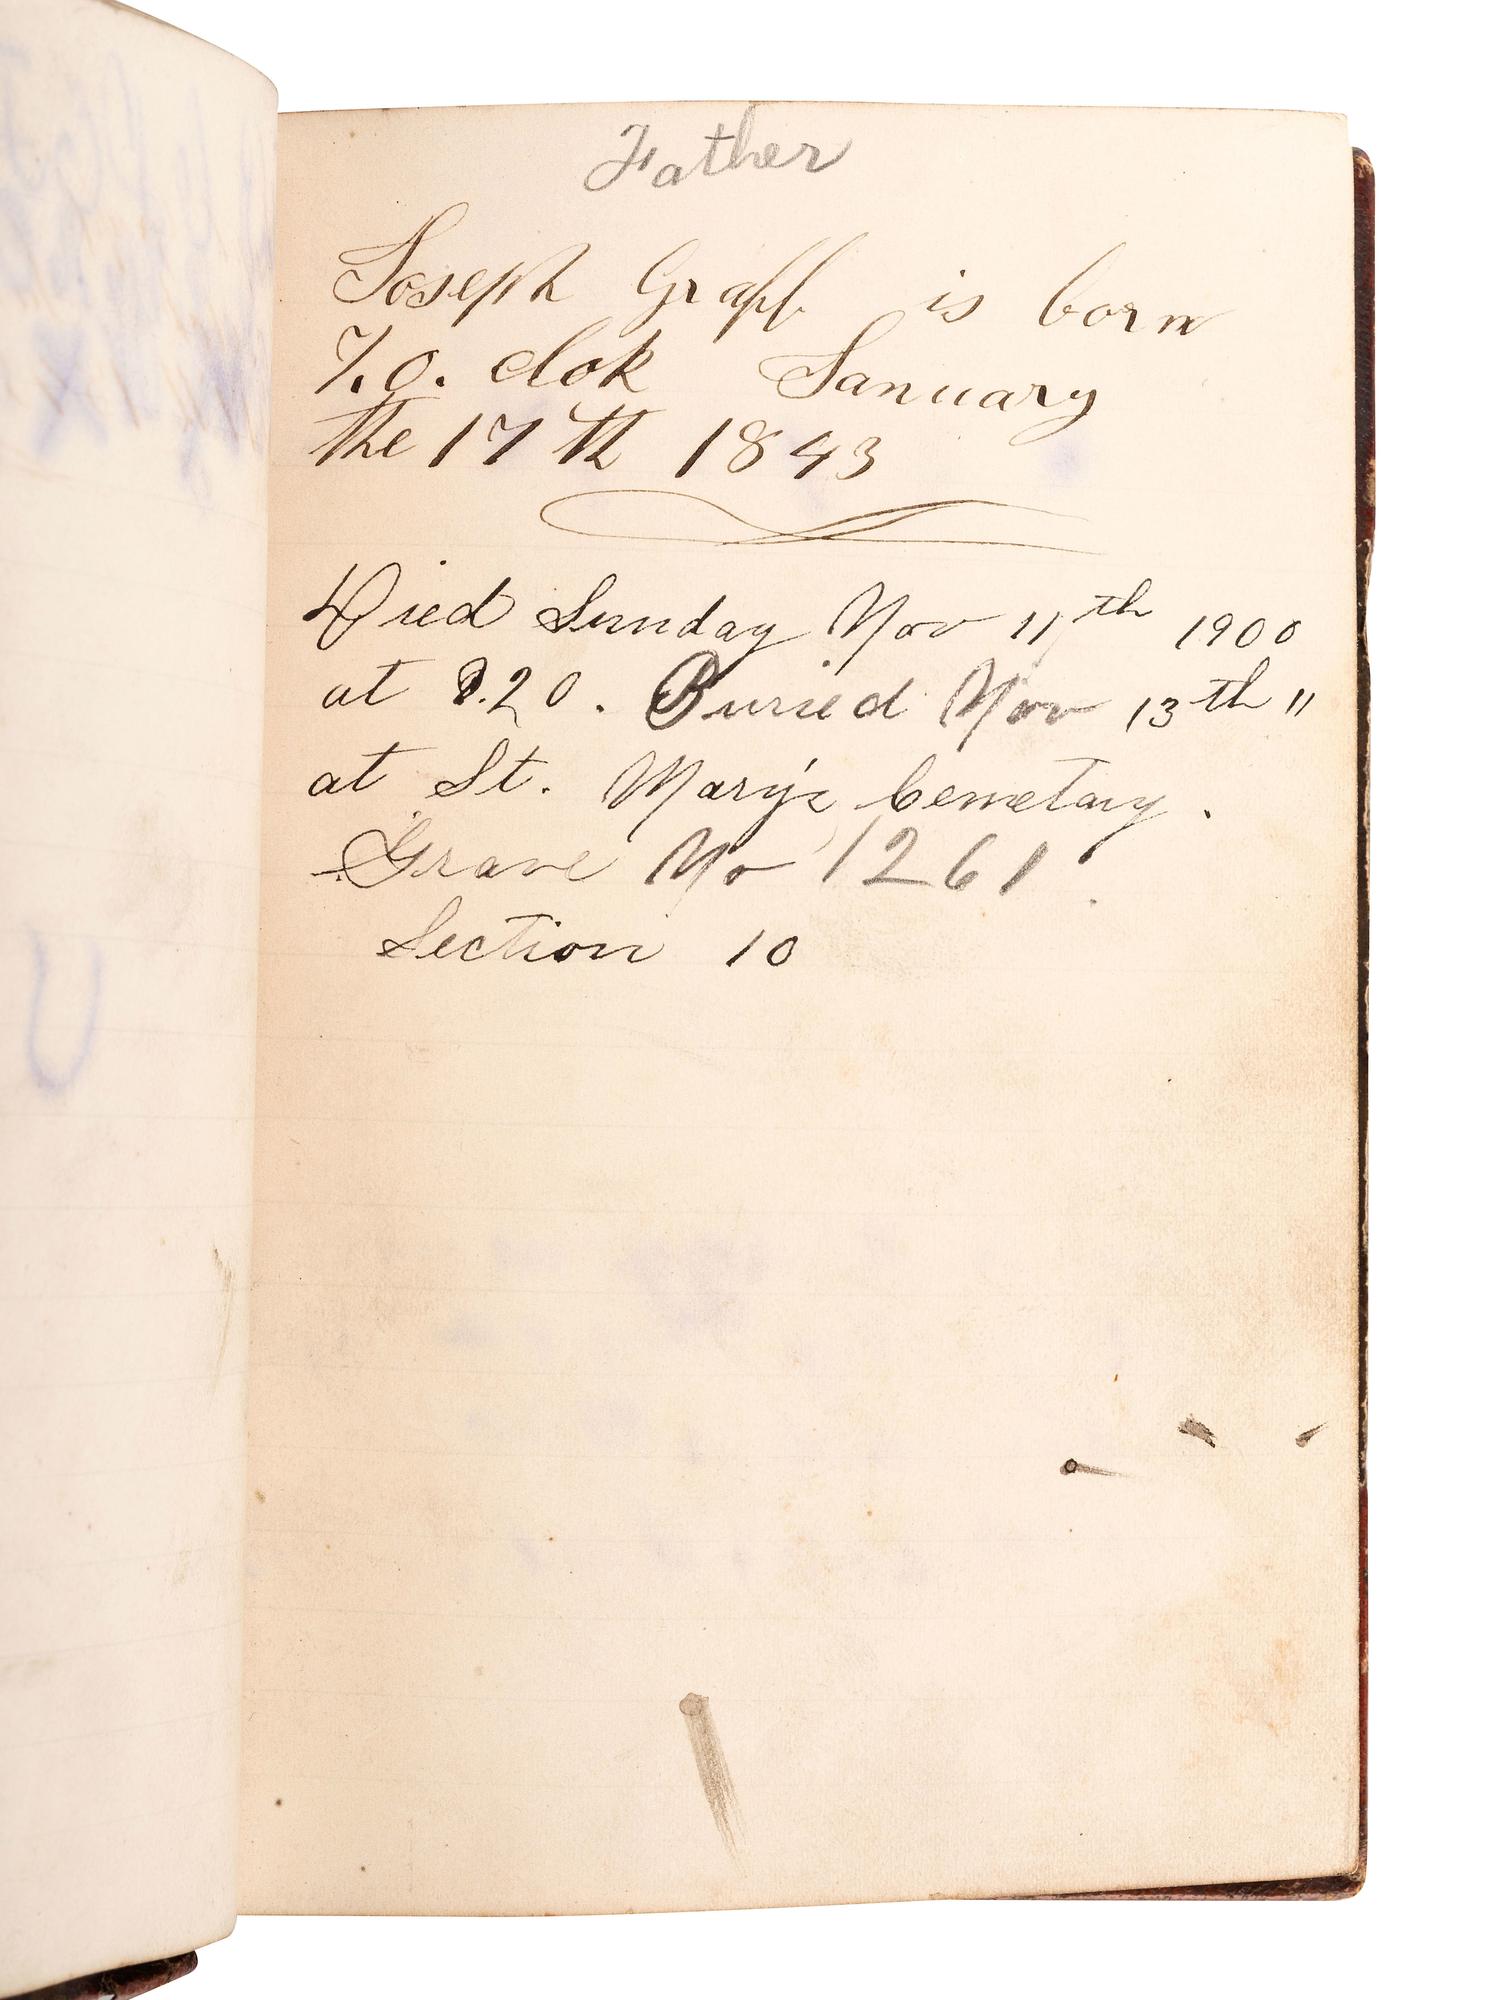 Father
Joseph Graff is born
7.o. clok January
the 17th 1843
Died Sunday Nov 11th 1900
at 2.20. Buried Nov 13th "
at St. Mary's Cemetary.
Grave No 1261.
Section 10